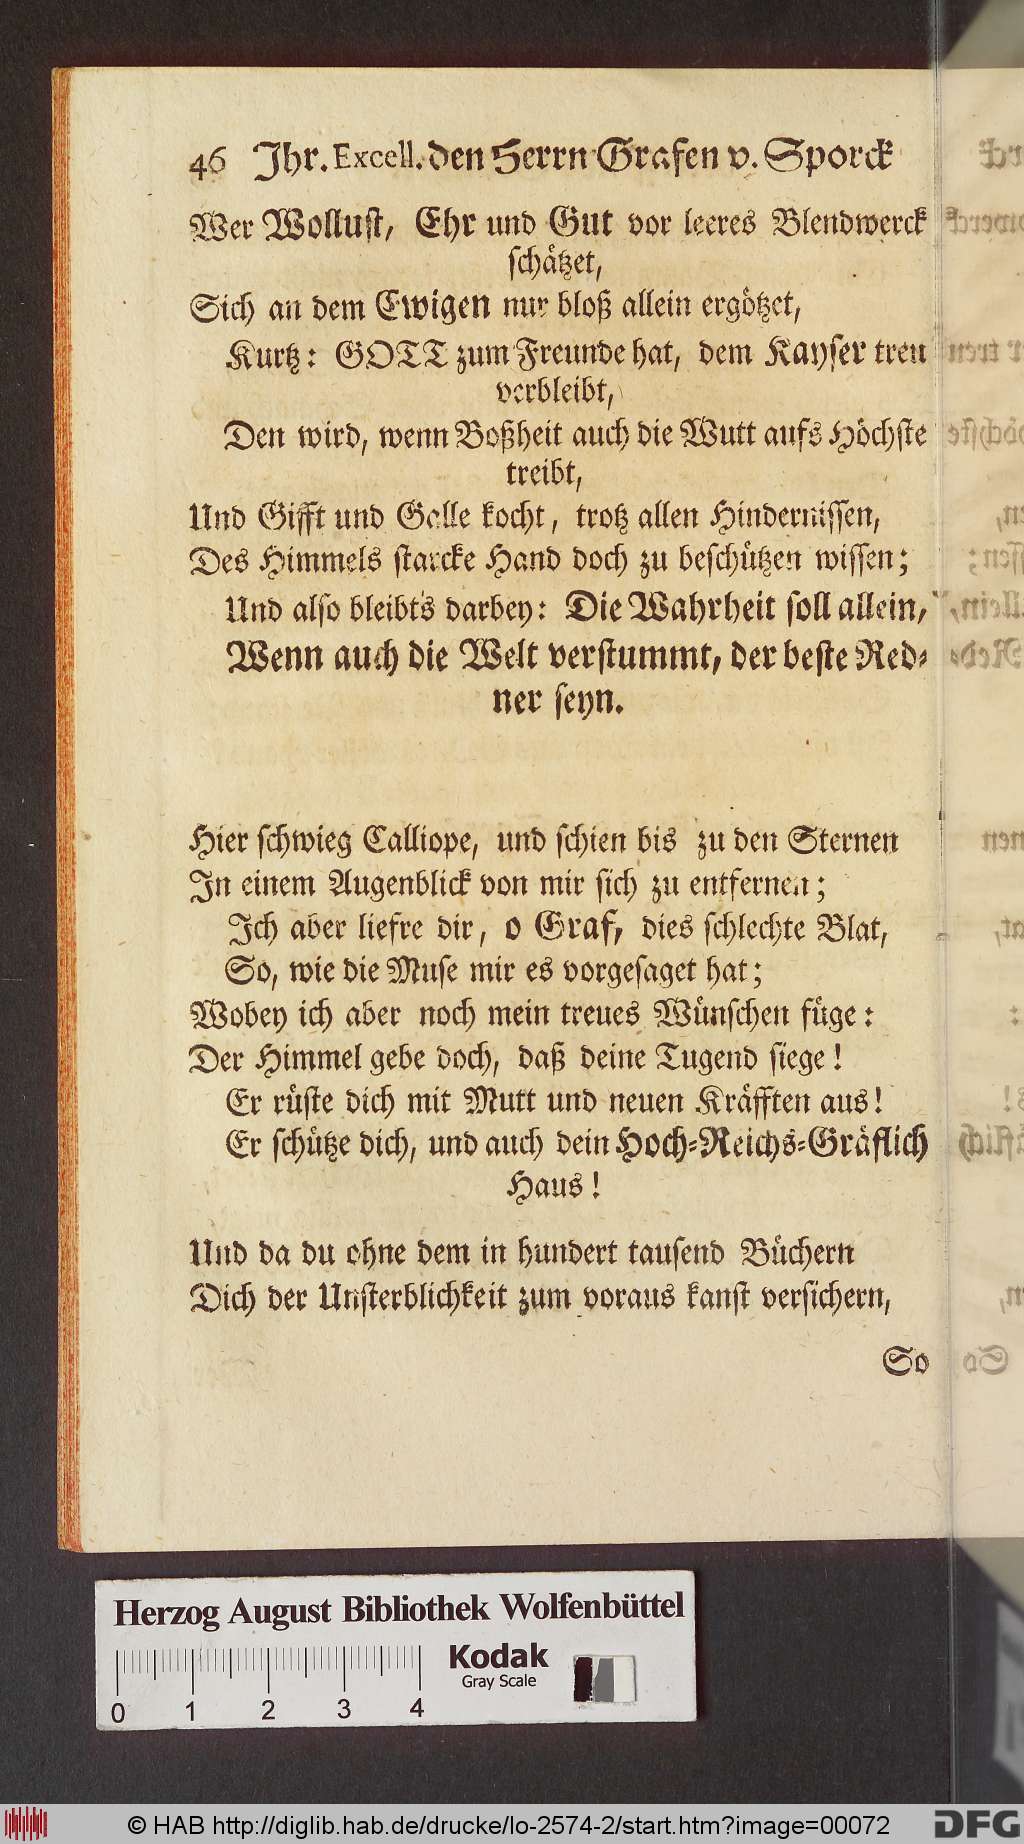 46 Ihr. Excell. den Herrn Grafen v. Sporck
Wer Wollust, Ehr und Gut vor leeres Blendwerck
schätzet,
Sich an dem Ewigen nur bloß allein ergötzet,
Kurtz: GOTT zum Freunde hat, dem Kayser treu
verbleibt,
Den wird, wenn Boßheit auch die Wutt aufs Höchste
treibt,
Und Gifft und Galle kocht, trotz allen Hindernissen,
Des Himmels starcke Hand doch zu beschützen wissen;
Und also bleibts darbey: Die Wahrheit soll allein,
Wenn auch die Welt verstummt, der beste Red-
ner seyn.
Hier schwieg Calliope, und schien bis zu den Sternen
In einem Augenblick von mir sich zu entfernen;
Ich aber liefre dir, o Graf, dies schlechte Blat,
So, wie die Muse mir es vorgesaget hat;
Wobey ich aber noch mein treues Wünschen füge:
Der Himmel gebe doch, daß deine Tugend siege!
Er rüste dich mit Mutt und neuen Kräfften aus!
Er schütze dich, und auch dein Hoch-Reichs-Gräflich
Haus!
Und da du ohne dem in hundert tausend Büchern
Dich der Unsterblichkeit zum voraus kanst versichern,
So
Herzog August Bibliothek Wolfenbüttel
Kodak
Gray Scale
0 1 2 3 4
© HAB http://diglib.hab.de/drucke/lo-2574-2/start.htm?image=00072
DFG